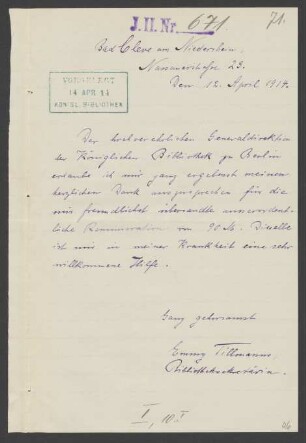 J. II. Nr. 671
71.
Bad Cleve am Niederrhein.
Nassauerstraße 23.
Den 12. April 1914.
VORGELEGT
14 APR 14
KÖNIGL. BIBLIOTHEK
Der hochverehrlichen Generaldirektion
der Königlichen Bibliothek zu Berlin
erlaube ich mir ganz ergebenst meinen
herzlichen Dank auszusprechen für die
mir freundlichst übersandte ausserordent-
liche Remuneration von 90 M. Dieselbe
ist mir in meiner Krankheit eine sehr
willkommene Hilfe.
Ganz gehorsamst
Emmy Tillmanns
Bibliothekssekretärin.